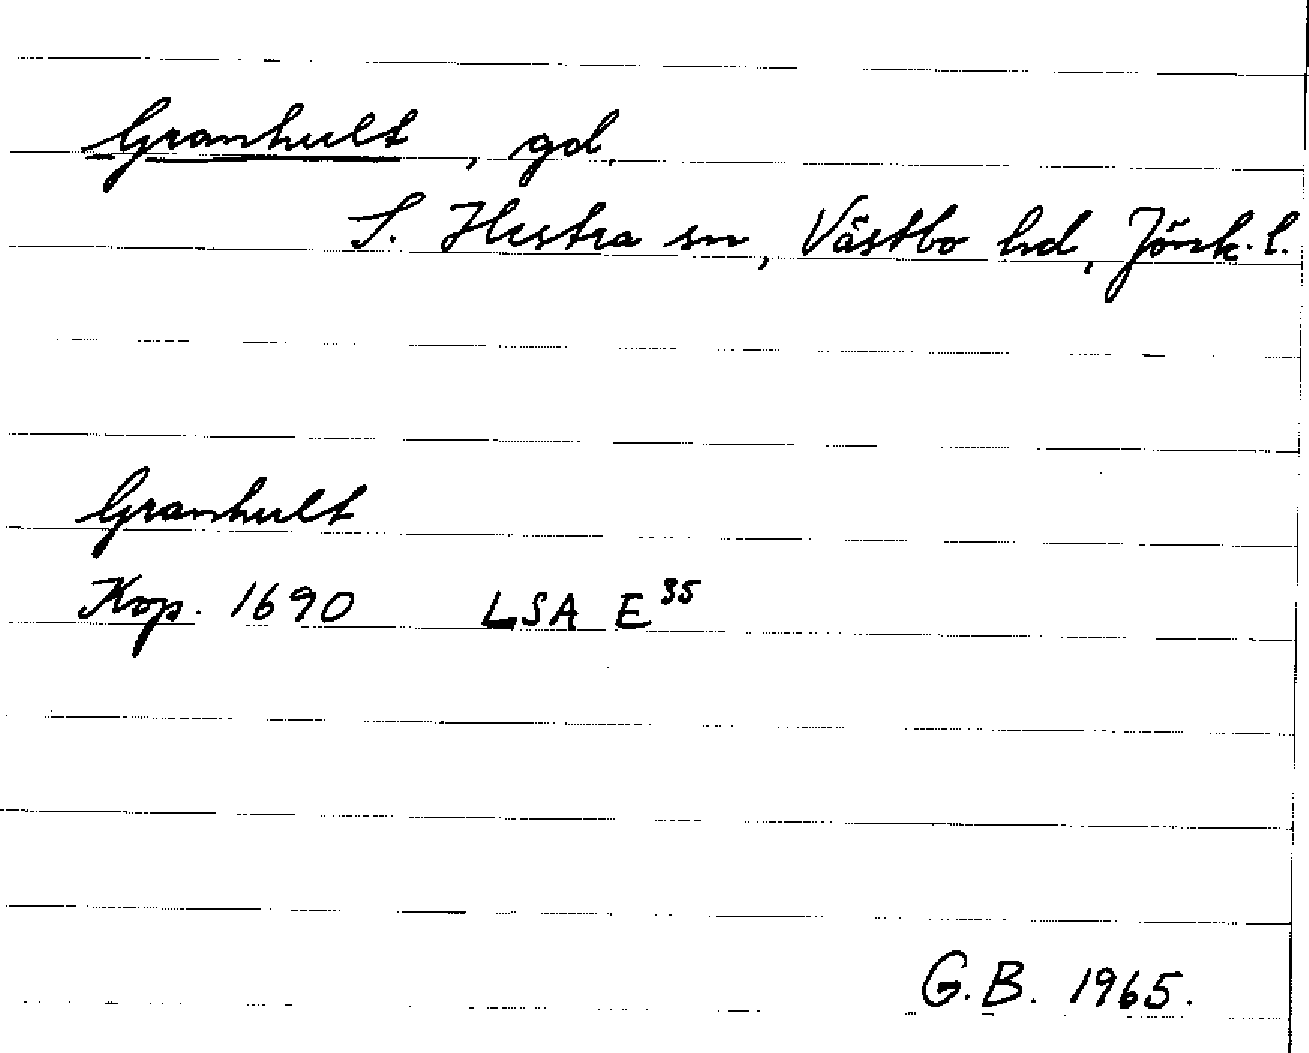 Granhult, gd.
S. Hestra sn, Västbo hd, Jönk. l.
Granhult
Kop. 1690 LSA E 35
G.B. 1965.